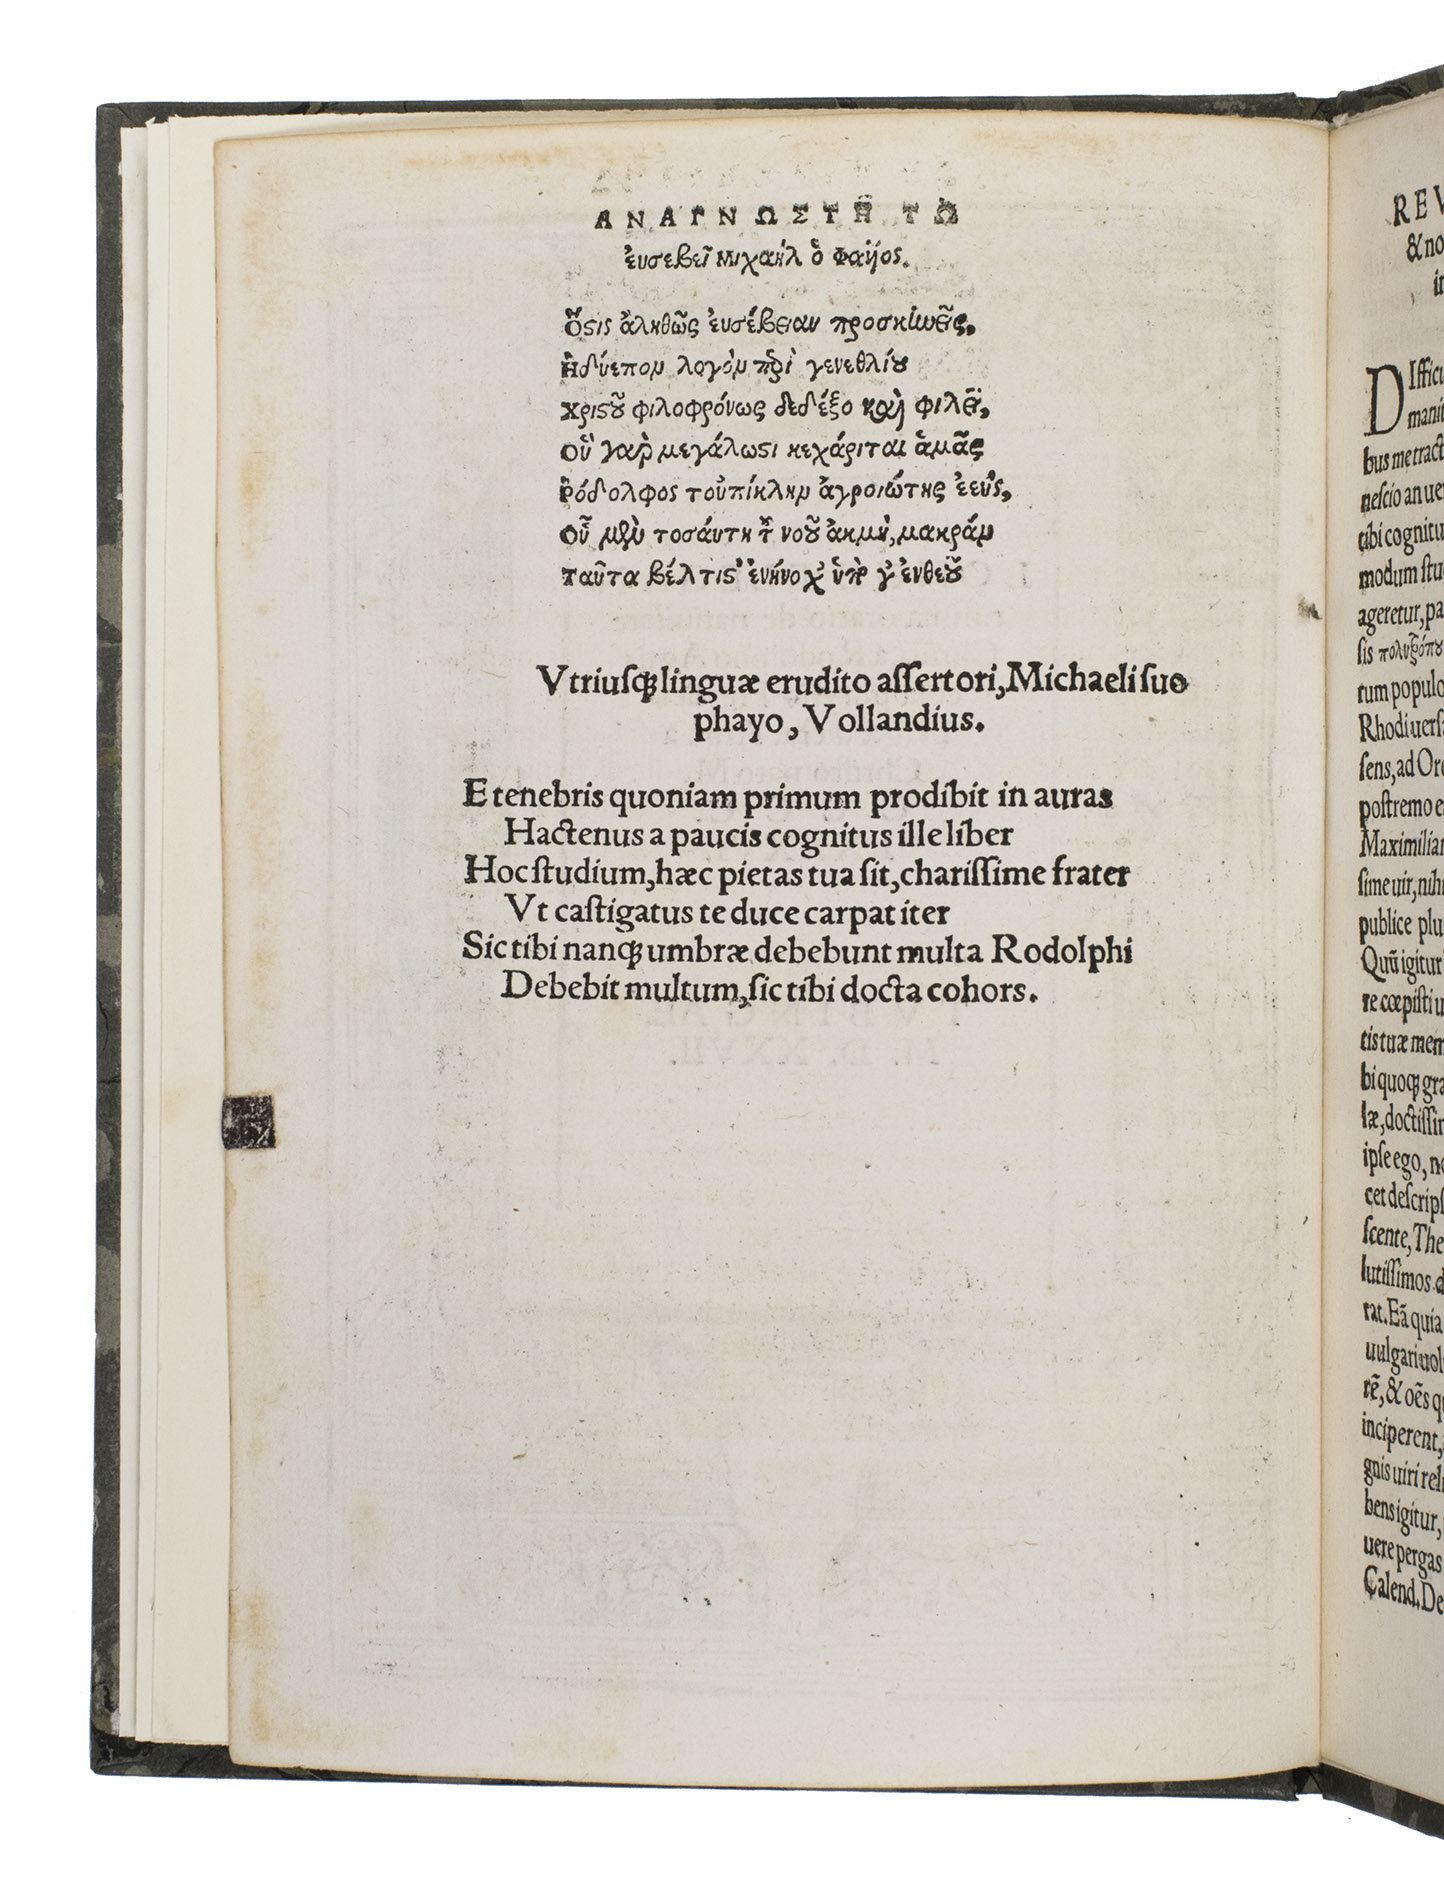 ΑΝΑΓΝΩΣΤΗ ΤΩ
ἐυσεβεῖ Μιχαὴλ ὁ Φαῆος.
ὅστις ἀληθῶς ἐυσέβειαν προσκυνεῖς,
Ἡδύεπον λογὸν πρὶ γενεθλίου
Χριστοῦ φιλοφρόνως δεδέξο καὶ φιλεῖ,
οὐ γὰρ μεγάλωστι κεχάριται ἁμᾶς
Ῥόδολφος τοὐπίκλην ἀγροιώτης ἐεύς,
Οὗ μὲν τοσάυτη τ νοῦ ἀκμή, μακρὰν
Ταῦτα βέλτιστ' ἐνήνοχ ὑπ γ ἐνθεοῦ
Vtriusq; linguæ erudito assertori, Michaeli suo
phayo, Vollandius.
E tenebris quoniam primum prodibit in auras
Hactenus a paucis cognitus ille liber
Hoc studium, hæc pietas tua sit, charissime frater
Vt castigatus te duce carpat iter
Sic tibi nanq; umbræ debebunt multa Rodolphi
Debebit multum, sic tibi docta cohors.
REV
& no
in
DIfficu
manit
bus me tract
nescio an ue
tibi cognitu
modum stu
ageretur, pa
sis πολυτρόπου
tum populo
Rhodi uers
sens, ad Ore
postremo e
Maximilian
sime uir, nih
publice plu
Quū igitur
re cœpisti u
tis tuæ mem
bi quoq; gra
læ, doctissim
ipse ego, no
cet descrips
scente, The
lutissimos d
rat. Eā quia
uulgari uol
rē, & oēs q
inciperent,
gnis uiri rel
bens igitur,
uere pergas
Calend. De